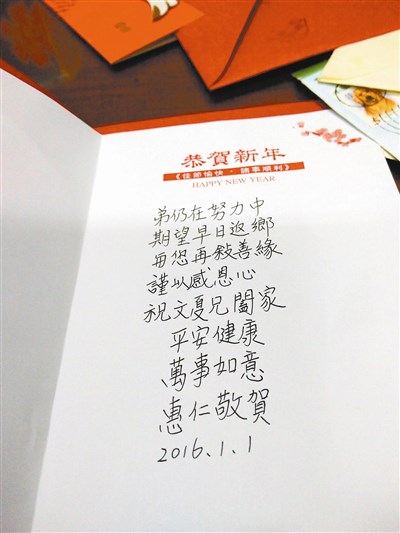 恭賀新年
《佳節愉快·諸事順利》
HAPPY NEW YEAR
弟仍在努力中
期望早日返鄉
与您再敍善緣
謹以感恩心
祝文夏兄闔家
平安健康
萬事如意
惠仁敬賀
2016.1.1